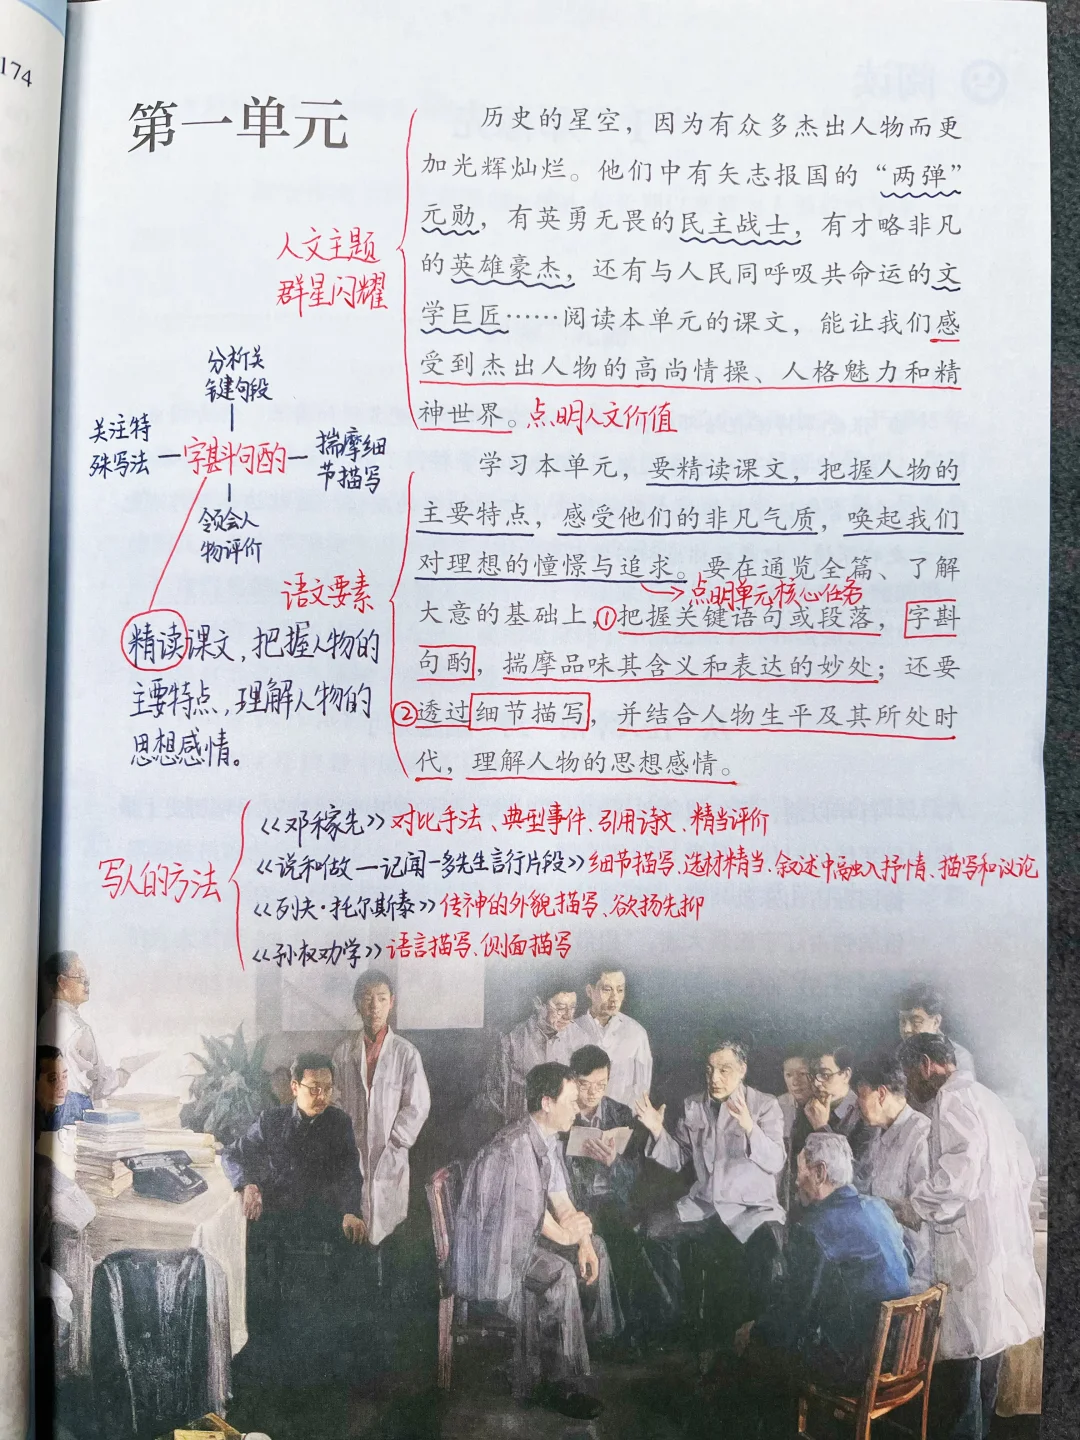 174
第一单元
历史的星空，因为有众多杰出人物而更
加光辉灿烂。他们中有矢志报国的“两弹”
元勋，有英勇无畏的民主战士，有才略非凡
的英雄豪杰，还有与人民同呼吸共命运的文
学巨匠……阅读本单元的课文，能让我们感
受到杰出人物的高尚情操、人格魅力和精
神世界。点明人文价值
人文主题
群星闪耀
学习本单元，要精读课文，把握人物的
主要特点，感受他们的非凡气质，唤起我们
对理想的憧憬与追求。要在通览全篇、了解
点明单元核心任务
大意的基础上，①把握关键语句或段落，字斟
句酌，揣摩品味其含义和表达的妙处；还要
②透过细节描写，并结合人物生平及其所处时
代，理解人物的思想感情。
分析关
键句段
关注特
殊写法
字斟句酌
揣摩细
节描写
领会人
物评价
语文要素
精读课文，把握人物的
主要特点，理解人物的
思想感情。
写人的方法
《邓稼先》对比手法、典型事件、引用诗文、精当评价
《说和做—记闻一多先生言行片段》细节描写、选材精当、叙述中融入抒情、描写和议论
《列夫·托尔斯泰》传神的外貌描写、欲扬先抑
《孙权劝学》语言描写、侧面描写